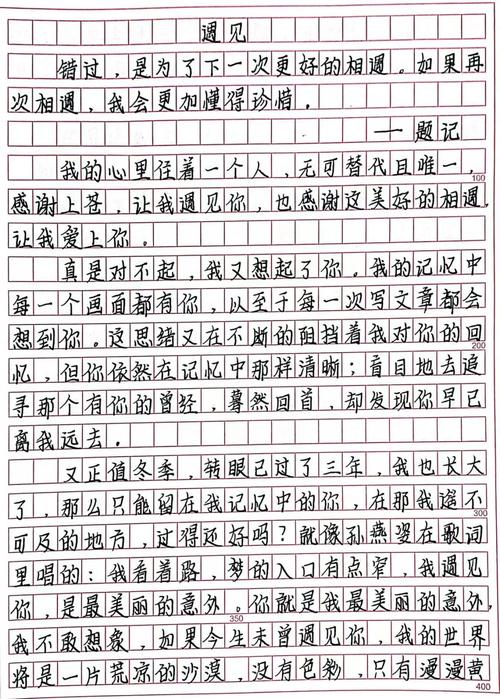 遇见
错过，是为了下一次更好的相遇。如果再
次相遇，我会更加懂得珍惜。
——题记
我的心里住着一个人，无可替代且唯一，
100
感谢上苍，让我遇见你，也感谢这美好的相遇，
让我爱上你。
真是对不起，我又想起了你。我的记忆中
每一个画面都有你，以至于每一次写文章都会
想到你。这思绪又在不断的阻挡着我对你的回
200
忆，但你依然在记忆中那样清晰；盲目地去追
寻那个有你的曾经，蓦然回首，却发现你早已
离我远去。
又正值冬季，转眼已过了三年，我也长大
了，那么只能留在我记忆中的你，在那我遥不
300
可及的地方，过得还好吗？就像孙燕姿在歌词
里唱的：我看着路，梦的入口有点窄，我遇见
你，是最美丽的意外。你就是我最美丽的意外，
350
我不敢想象，如果今生未曾遇见你，我的世界
将是一片荒凉的沙漠，没有色彩，只有漫漫黄
400